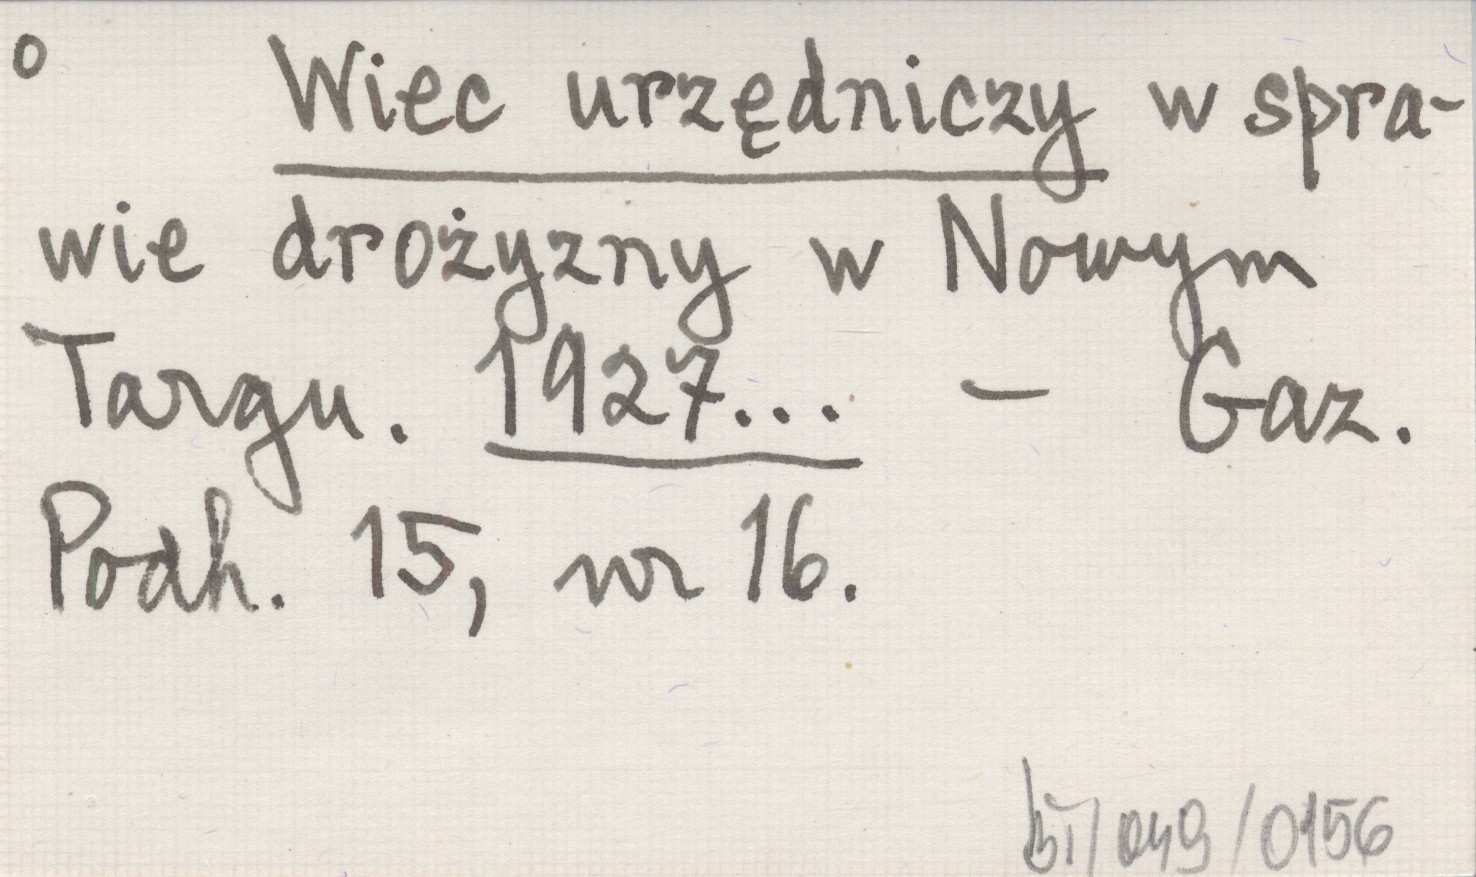 o Wiec urzędniczy w spra-
wie drożyzny w Nowym
Targu. 1927... - Gaz.
Podh. 15, nr 16.
bi/049/0156